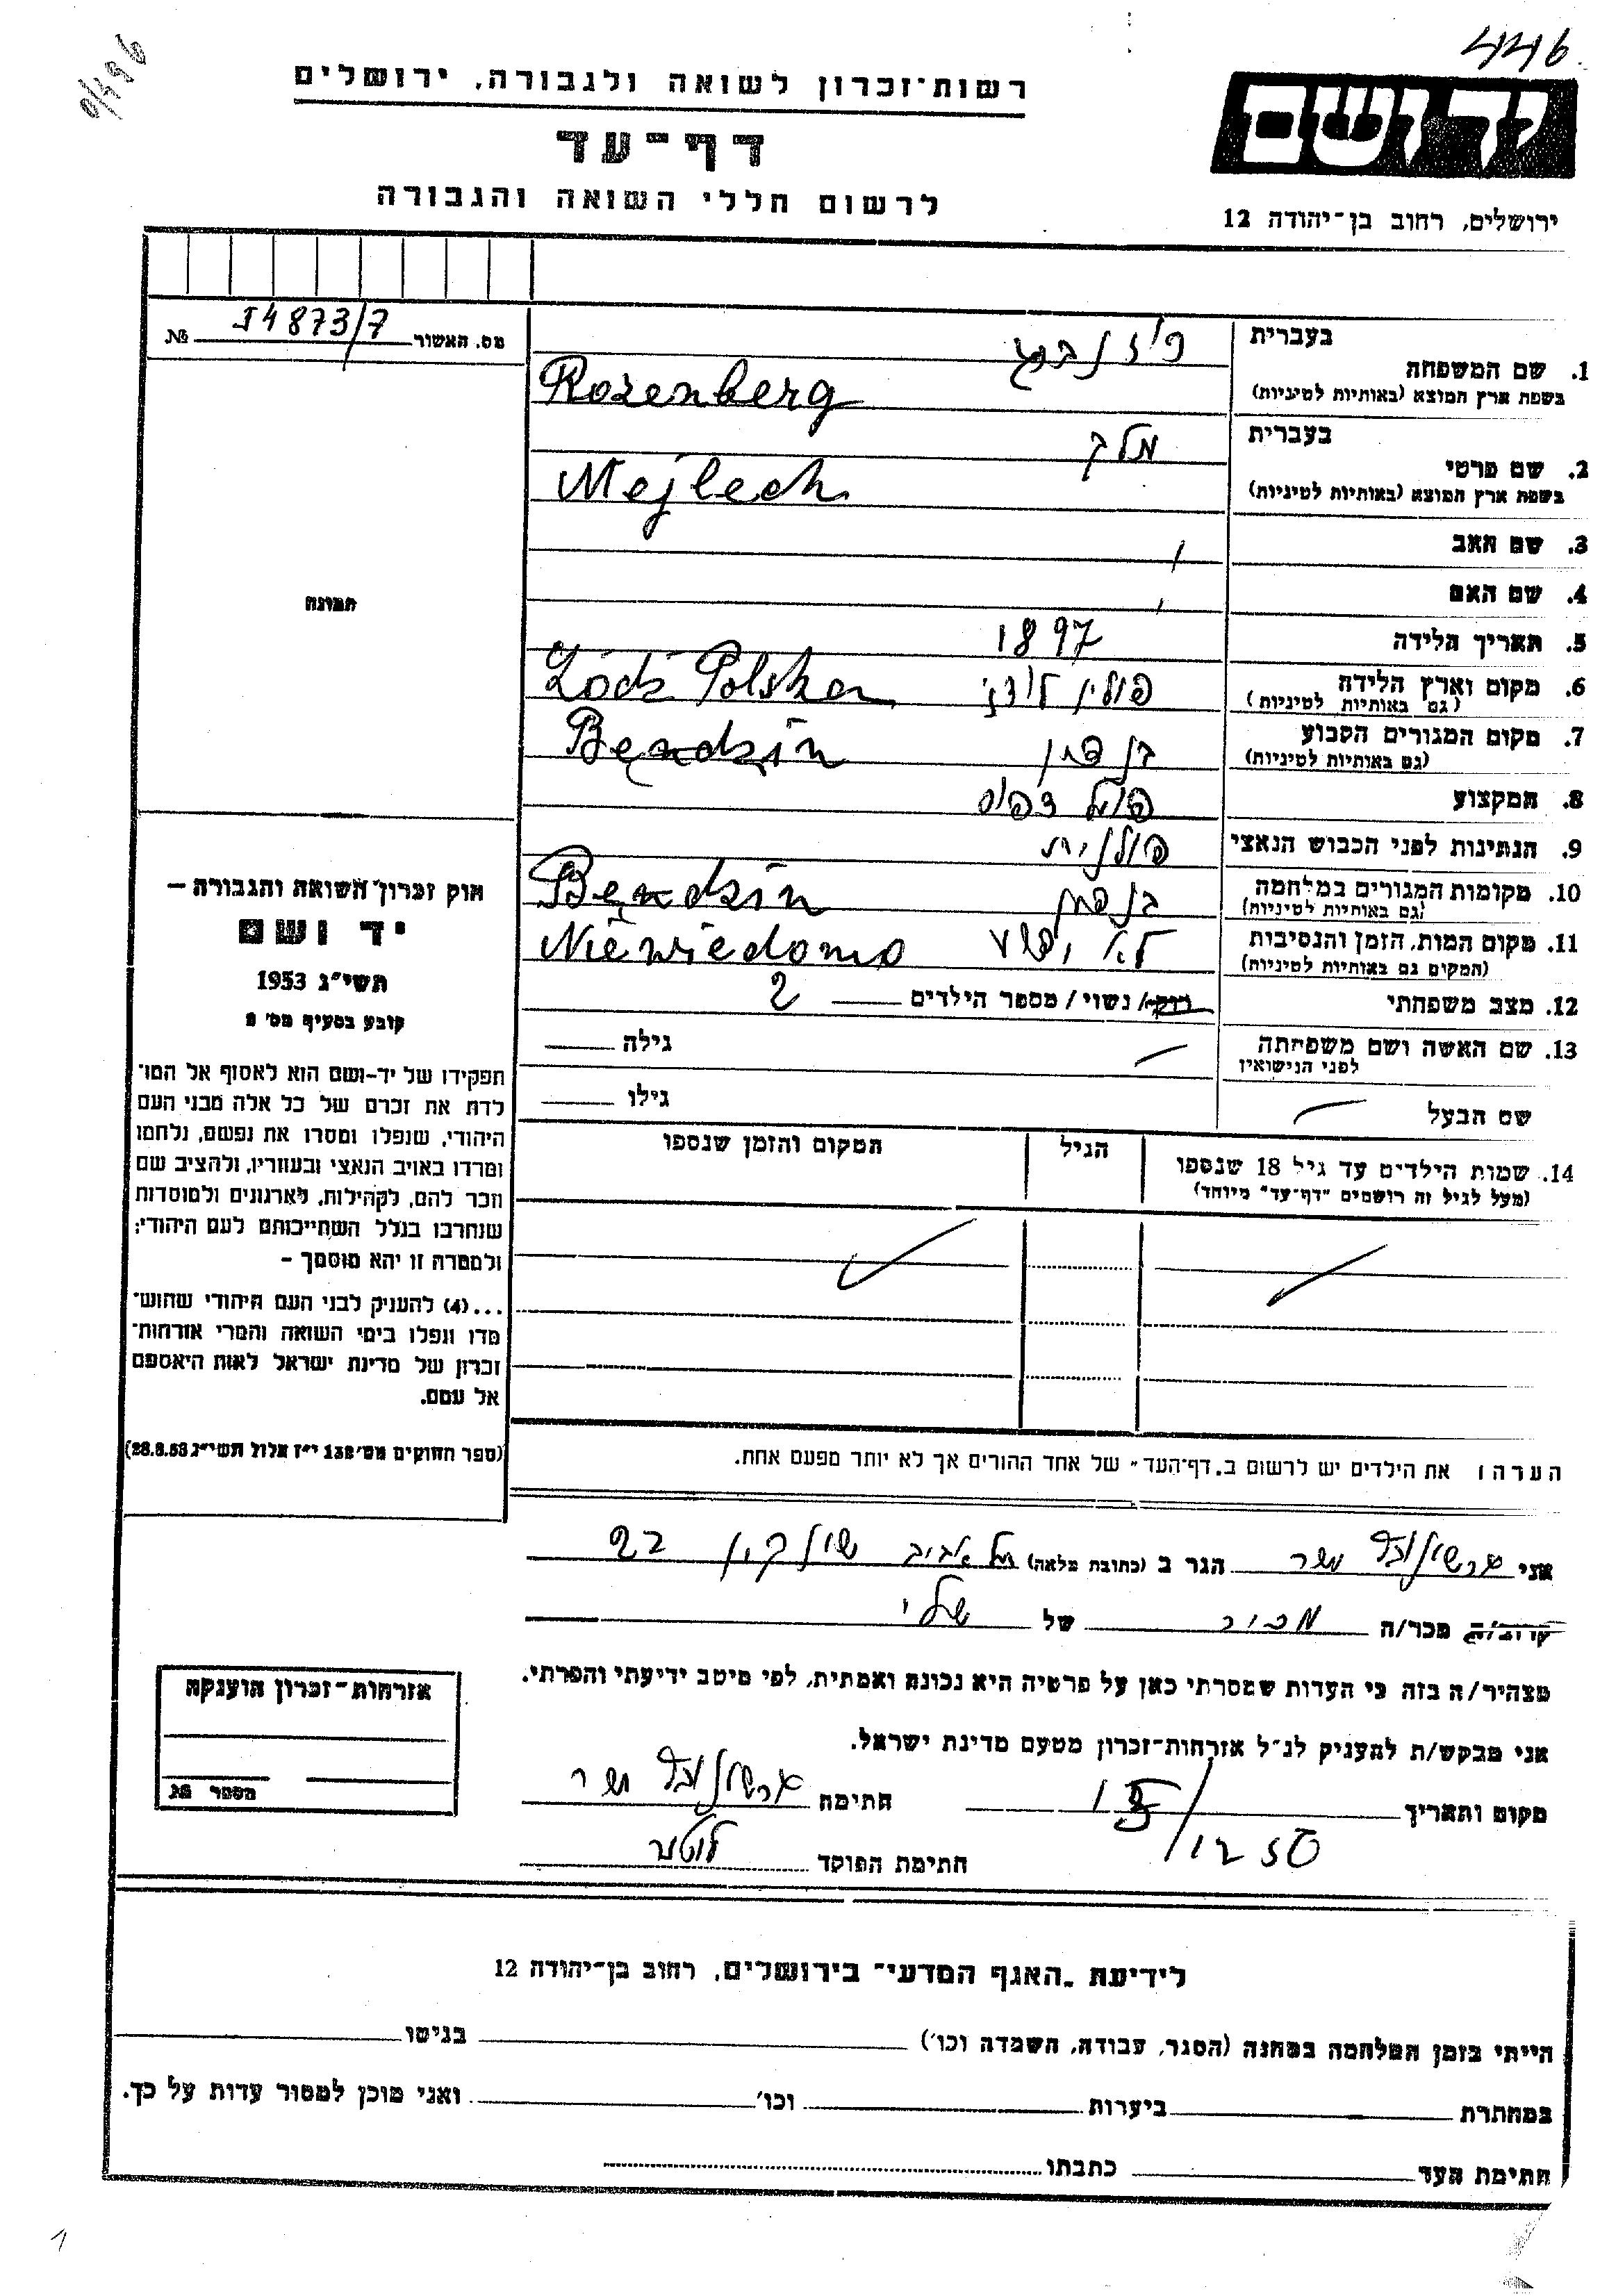 446
רשות־זכרון לשואה ולגבורה, ירושלים
יד ושם
דף־עד
לרשום חללי השואה והגבורה
ירושלים, רחוב בן־יהודה 12
מס. האשור 14873/7 №
בעברית
רוזנברג
1. שם המשפחה
בשפת ארץ המוצא (באותיות לטיניות)
Rozenberg
בעברית
מלך
2. שם פרטי
בשפת ארץ המוצא (באותיות לטיניות)
Mejlech
3. שם האב
4. שם האם
תמונה
5. תאריך הלידה 1897
6. מקום וארץ הלידה פולין לודז' Łódź Polska
(גם באותיות לטיניות)
7. מקום המגורים הקבוע Bendzin
(גם באותיות לטיניות)
8. המקצוע פועל דפוס
9. הנתינות לפני הכבוש הנאצי פולנית
10. מקומות המגורים במלחמה Bendzin
(גם באותיות לטיניות)
11. מקום המות, הזמן והנסיבות לא ידוע Niewiedomo
(המקום גם באותיות לטיניות)
12. מצב משפחתי רוק/ נשוי/ מספר הילדים 2
13. שם האשה ושם משפחתה גילה
לפני הנישואין
שם הבעל גילו
14. שמות הילדים עד גיל 18 שנספו
(מעל לגיל זה רושמים "דף־עד" מיוחד)
הגיל
המקום והזמן שנספו
חוק זכרון השואה והגבורה –
יד ושם
תשי"ג 1953
קובע בסעיף מס' 2
תפקידו של יד-ושם הוא לאסוף אל המו־
לדת את זכרם של כל אלה מבני העם
היהודי, שנפלו ומסרו את נפשם, נלחמו
ומרדו באויב הנאצי ובעוזריו, ולהציב שם
וזכר להם, לקהילות, לארגונים ולמוסדות
שנחרבו בגלל השתייכותם לעם היהודי;
ולמטרה זו יהא מוסמך –
...(4) להעניק לבני העם היהודי שהוש־
מדו ונפלו בימי השואה והמרי אזרחות־
זכרון של מדינת ישראל לאות היאספם
אל עמם.
(ספר החוקים מס' 132 י"ז אלול תשי"ג 28.8.53)
הערה: את הילדים יש לרשום ב"דף־העד" של אחד ההורים אך לא יותר מפעם אחת.
אני הגר ב (כתובת מלאה) תל אביב 22
קרוב/ה מכר/ה מכיר של שלי
מצהיר/ה בזה כי העדות שמסרתי כאן על פרטיה היא נכונה ואמתית, לפי מיטב ידיעתי והכרתי.
אני מבקש/ת להעניק לנ"ל אזרחות־זכרון מטעם מדינת ישראל.
מקום ותאריך חתימה
חתימת הפוקד
אזרחות־זכרון הוענקה
מספר №
לידיעת "האגף המדעי" בירושלים, רחוב בן־יהודה 12
הייתי בזמן המלחמה במחנה (הסגר, עבודה, השמדה וכו') בגיטו
במחתרת ביערות וכו' ואני מוכן למסור עדות על כך.
חתימת העד כתבתו